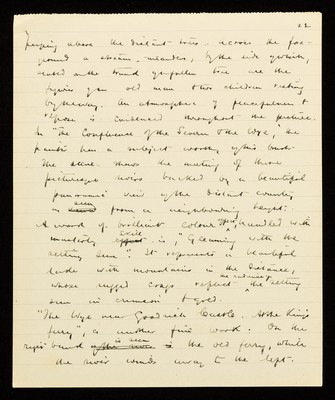 22
peeping above the distant trees. across the fore-
ground a stream meanders, by the side of which,
seated on the trunk of a fallen tree are the
figures of an old man & two children resting
by the way. An atmosphere of peacefulness &
repose is continued throughout the picture.
In "The Confluence of the Severn & the Wye," the
painter has a subject worthy of his brush.
The above shows the meeting of these
picturesque rivers backed by a beautiful
panoramic view of the distant country
as seen from a neighbouring height.
A work of brilliant colour, handled with
masterly skill is, "Gleaming with the
setting sun." It represents a beautiful
lake with mountains in the distance,
whose rugged crags reflect the setting
sun in crimson & gold.
"The Wye near Goodrich Castle. At the King's
ferry", is another fine work. On the
right bank is seen the old ferry, while
the river winds away to the left.